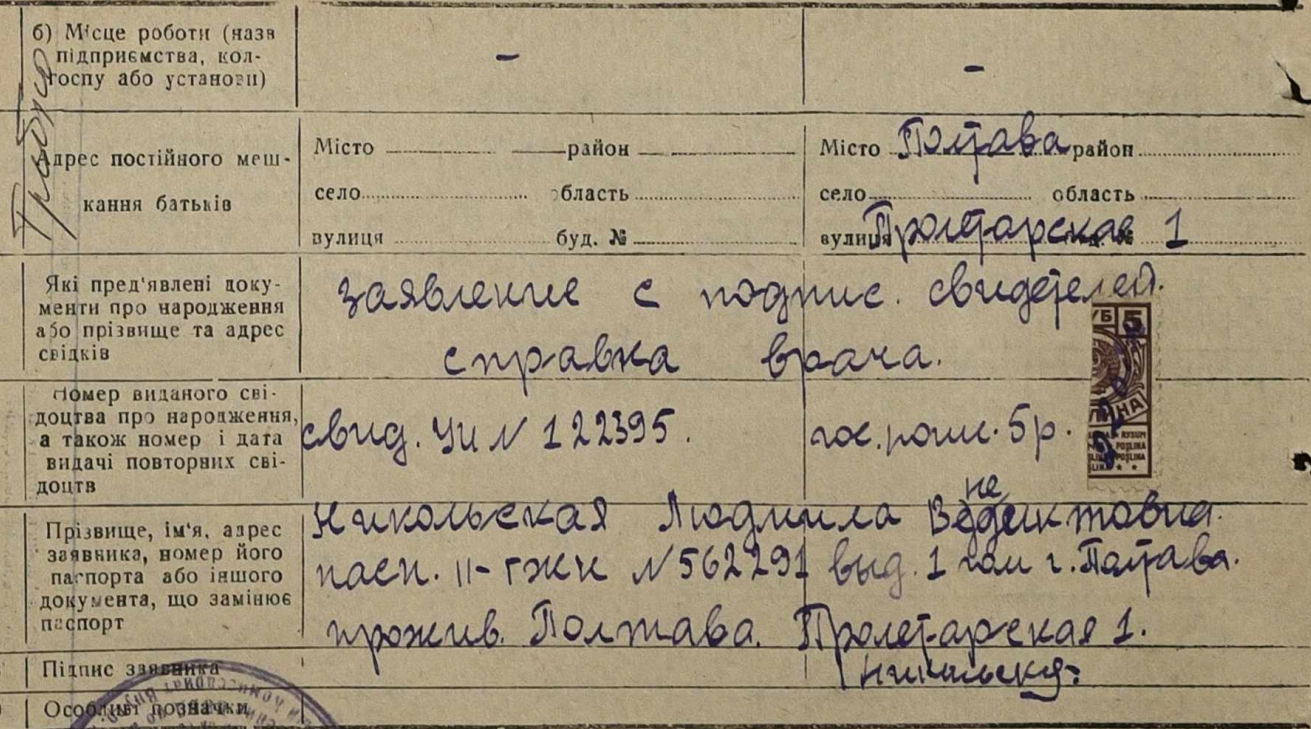 б) Місце роботи (назв
підприємства, кол-
госпу або установи)
-
-
Адрес постійного меш-
кання батьків
Місто район
село область
вулиця буд. №
Місто Полтава район
село область
вулиця Пролетарская 1
Які пред'явлені доку-
менти про народження
або прізвище та адрес
свідків
заявление с подпис. свидетелей.
справка врача.
Номер виданого сві-
доцтва про народження,
а також номер і дата
видачі повторних сві-
доцтв
свид. УИ № 122395.
гос. пошл. 5р.
5
Прізвище, ім'я, адрес
заявника, номер його
паспорта або іншого
документа, що замінює
паспорт
Никольская Людмила Венедиктовна
пасп. II-ГЖК № 562291 выд. 1 гом г. Полтава.
прожив. Полтава. Пролетарская 1.
Підпис заявника
Особливі позначки